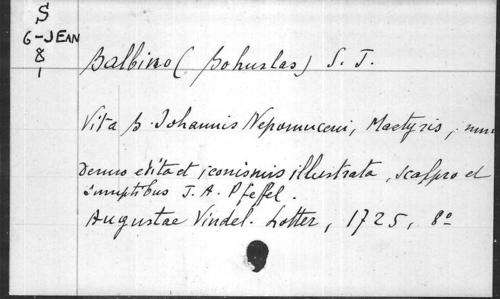 S
6-JEAN
8
1
Balbino (Bohuslas) S. J.
Vita B. Johannis Nepomuceni, Martyris,
Denuo edita et iconismis illustrata, scalpro et
sumptibus J. A. Pfeffel.
Augustae Vindel. Lotter, 1725, 8º